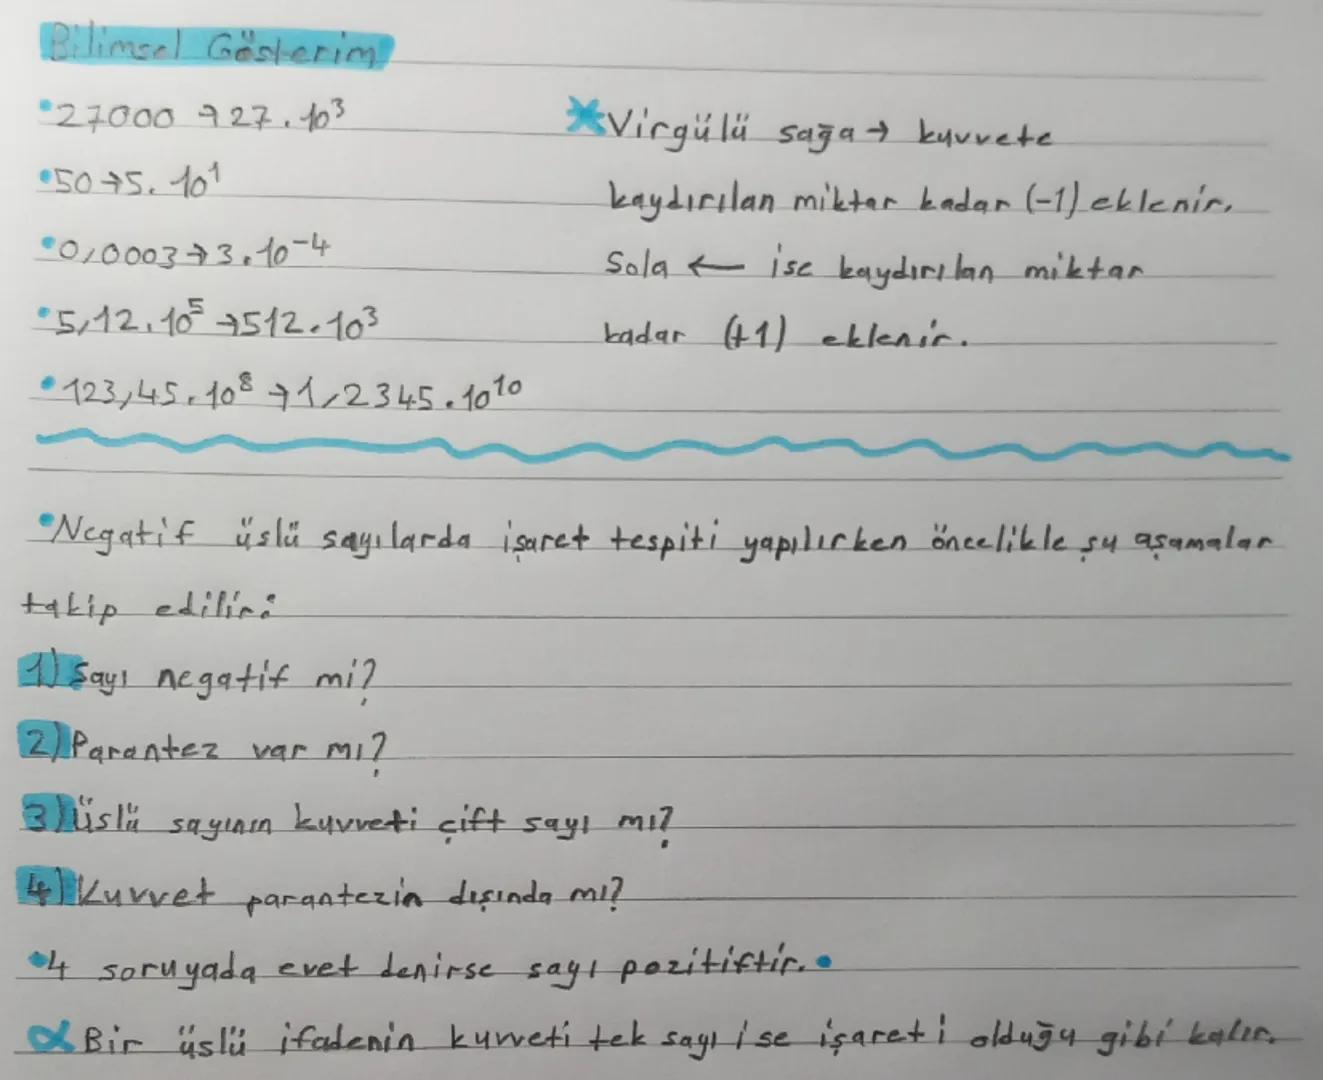 Bilimsel Gösterim
•27000 → 27.10³
•50 → 5.10¹
•0,0003 → 3.10⁻⁴
•5,12.10⁵ → 512.10³
•123,45.10⁸ → 1,2345.10¹⁰
Virgülü sağa → kuvvete
kaydırılan miktar kadar (-1) eklenir.
Sola ← ise kaydırılan miktar
kadar (+1) eklenir.
•Negatif üslü sayılarda işaret tespiti yapılırken öncelikle şu aşamalar
takip edilir:
1) Sayı negatif mi?
2) Parantez var mı?
3) Üslü sayının kuvveti çift sayı mı?
4) Kuvvet parantezin dışında mı?
•4 soruyada evet denirse sayı pozitiftir.•
Bir üslü ifadenin kuvveti tek sayı ise işareti olduğu gibi kalır.